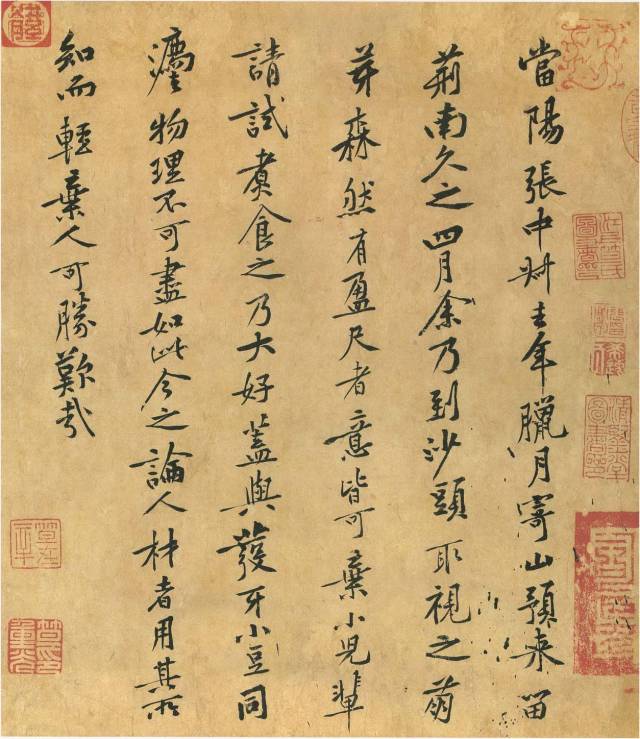 當陽張中叔去年臘月寄山預來留
荊南久之四月余乃到沙頭取視之萠
芽森然有盈尺者意皆可棄小兒輩
請試煑食之乃大好蓋與發牙小豆同
灋物理不可盡如此今之論人材者用其所
知而輕棄人可勝歎哉